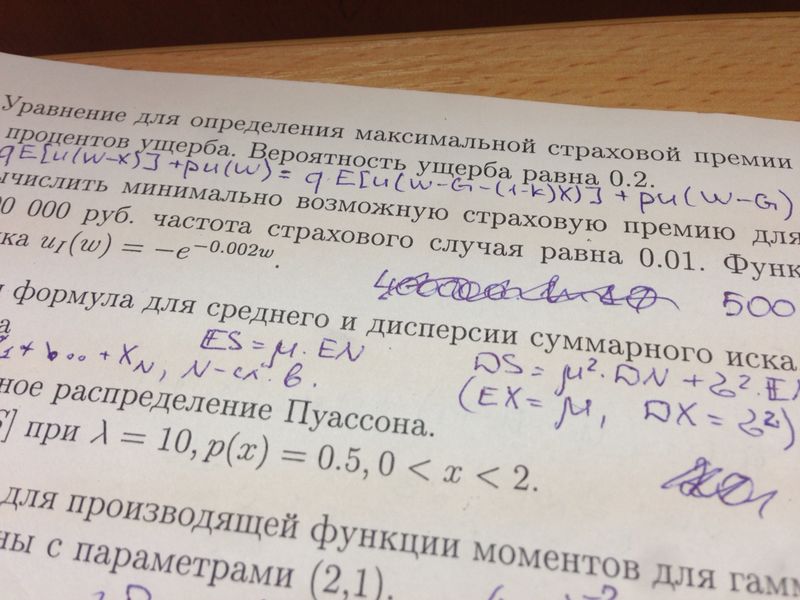 Уравнение для определения максимальной страховой премии
процентов ущерба. Вероятность ущерба равна 0.2.
qE[u(w-x)] + pu(w) = q·E[u(w-G-(1-k)X)] + pu(w-G)
вычислить минимально возможную страховую премию для
00 000 руб. частота страхового случая равна 0.01.
u_I(w) = −e^{−0.002w}.
500
формула для среднего и дисперсии суммарного иска
+ ... + X_N, N-сл. в. ES = μ·EN
DS = μ²·DN + σ²·
(EX = μ, DX = σ²)
распределение Пуассона.
S] при λ = 10, p(x) = 0.5, 0 < x < 2.
для производящей функции моментов для
с параметрами (2,1).